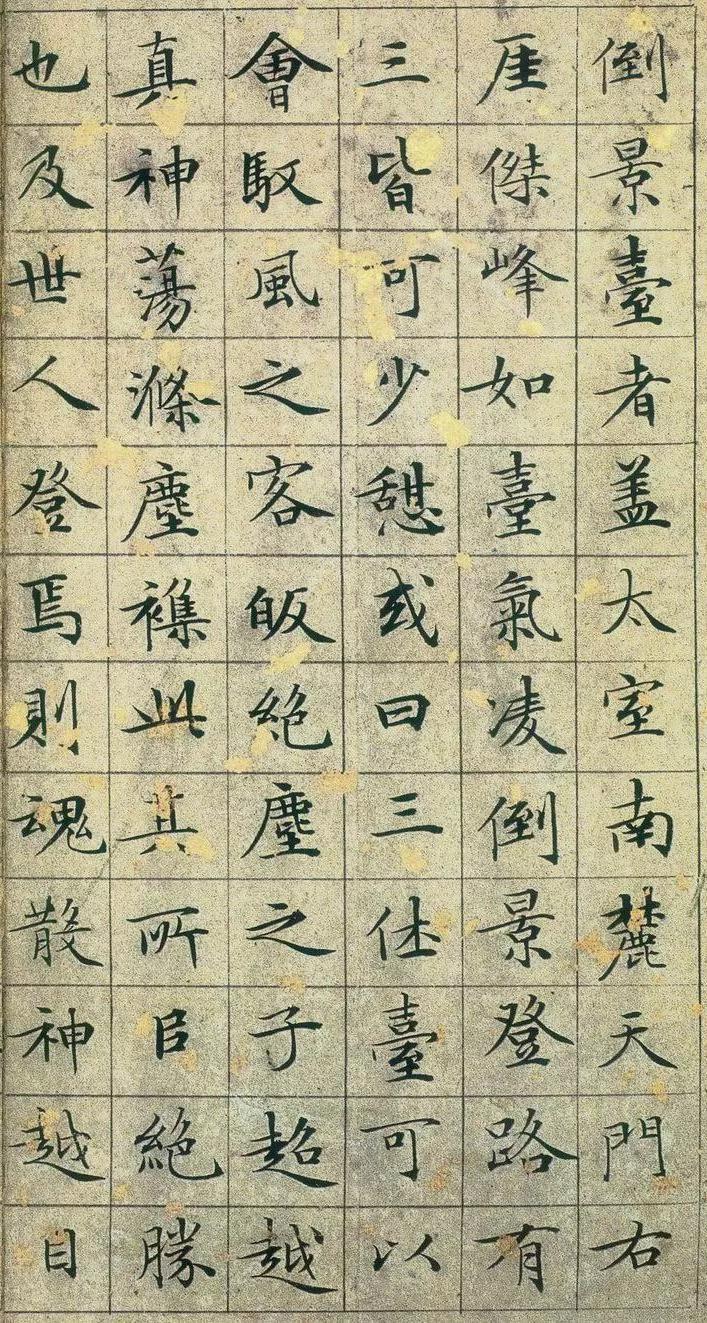 倒景臺者盖太室南麓天門右
厓傑峰如臺氣凌倒景登路有
三皆可少憩或曰三休臺可以
會馭風之客皈絶塵之子超越
真神蕩滌塵襍此其所㠯絶勝
也及世人登焉則魂散神越目